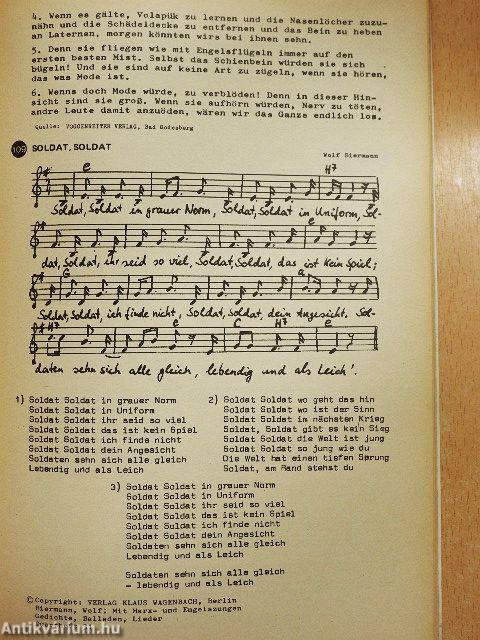 4. Wenn es gälte, Volapük zu lernen und die Nasenlöcher zuzu-
nähn und die Schädeldecke zu entfernen und das Bein zu heben
an Laternen, morgen könnten wirs bei ihnen sehn.
5. Denn sie fliegen wie mit Engelsflügeln immer auf den
ersten besten Mist. Selbst das Schienbein würden sie sich
bügeln! Und sie sind auf keine Art zu zügeln, wenn sie hören,
das was Mode ist.
6. Wenns doch Mode würde, zu verblöden! Denn in dieser Hin-
sicht sind sie groß. Wenn sie aufhörn würden, Nerv zu töten,
andre Leute damit anzuöden, wären wir das Ganze endlich los.
Quelle: VOGGENREITER VERLAG, Bad Godesberg
109 SOLDAT, SOLDAT
Wolf Biermann
e H7
Soldat, Soldat in grauer Norm, Soldat, Soldat in Uniform, Sol-
e
dat, Soldat, ihr seid so viel, Soldat, Soldat, das ist kein Spiel;
G a
Soldat, Soldat, ich finde nicht, Soldat, Soldat, dein Angesicht. Sol-
H7 e C H7 e
daten sehn sich alle gleich, lebendig und als Leich'.
1) Soldat Soldat in grauer Norm
Soldat Soldat in Uniform
Soldat Soldat ihr seid so viel
Soldat Soldat das ist kein Spiel
Soldat Soldat ich finde nicht
Soldat Soldat dein Angesicht
Soldaten sehn sich alle gleich
Lebendig und als Leich
2) Soldat Soldat wo geht das hin
Soldat Soldat wo ist der Sinn
Soldat Soldat im nächsten Krieg
Soldat, Soldat gibt es kein Sieg
Soldat Soldat die Welt ist jung
Soldat Soldat so jung wie du
Die Welt hat einen tiefen Sprung
Soldat, am Rand stehst du
3) Soldat Soldat in grauer Norm
Soldat Soldat in Uniform
Soldat Soldat ihr seid so viel
Soldat Soldat das ist kein Spiel
Soldat Soldat ich finde nicht
Soldat Soldat dein Angesicht
Soldaten sehn sich alle gleich
Lebendig und als Leich
Soldaten sehn sich alle gleich
- lebendig und als Leich
©Copyright: VERLAG KLAUS WAGENBACH, Berlin
Biermann, Wolf: Mit Marx- und Engelszungen
Gedichte, Balladen, Lieder
Antikvárium.hu